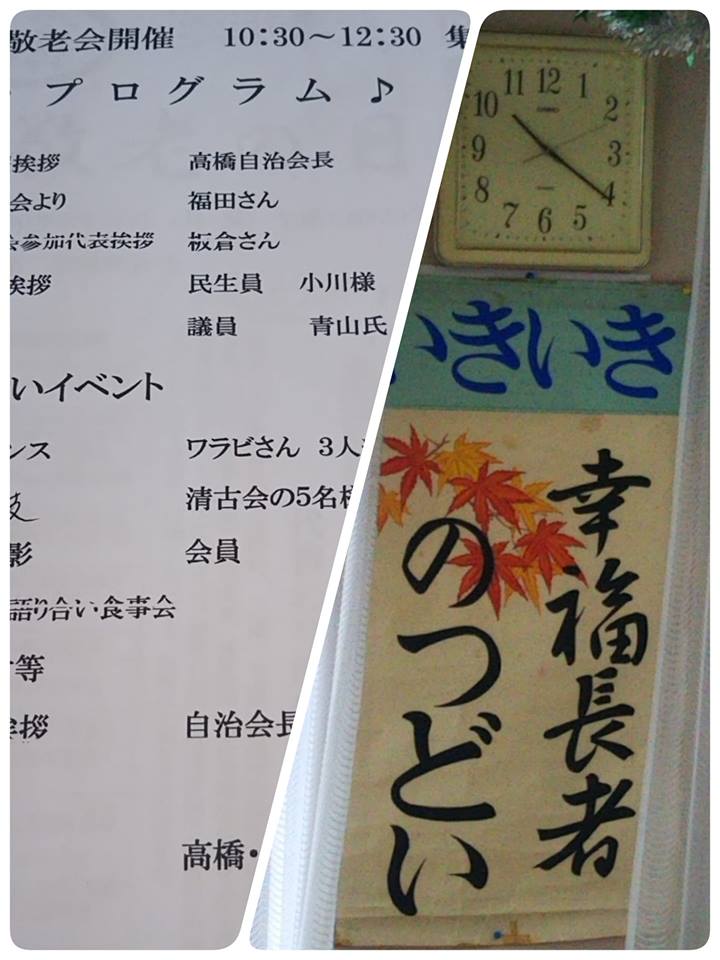 敬老会開催 10：30～12：30 集
プログラム♪
挨拶 高橋自治会長
会より 福田さん
会参加代表挨拶 板倉さん
挨拶 民生員 小川様
議員 青山氏
いイベント
ンス ワラビさん 3人
技 清古会の5名様
影 会員
語り合い食事会
等
挨拶 自治会長
高橋・
11 12 1
10 2
9 3
8 4
7 6 5
いきいき
幸福長者
のつどい